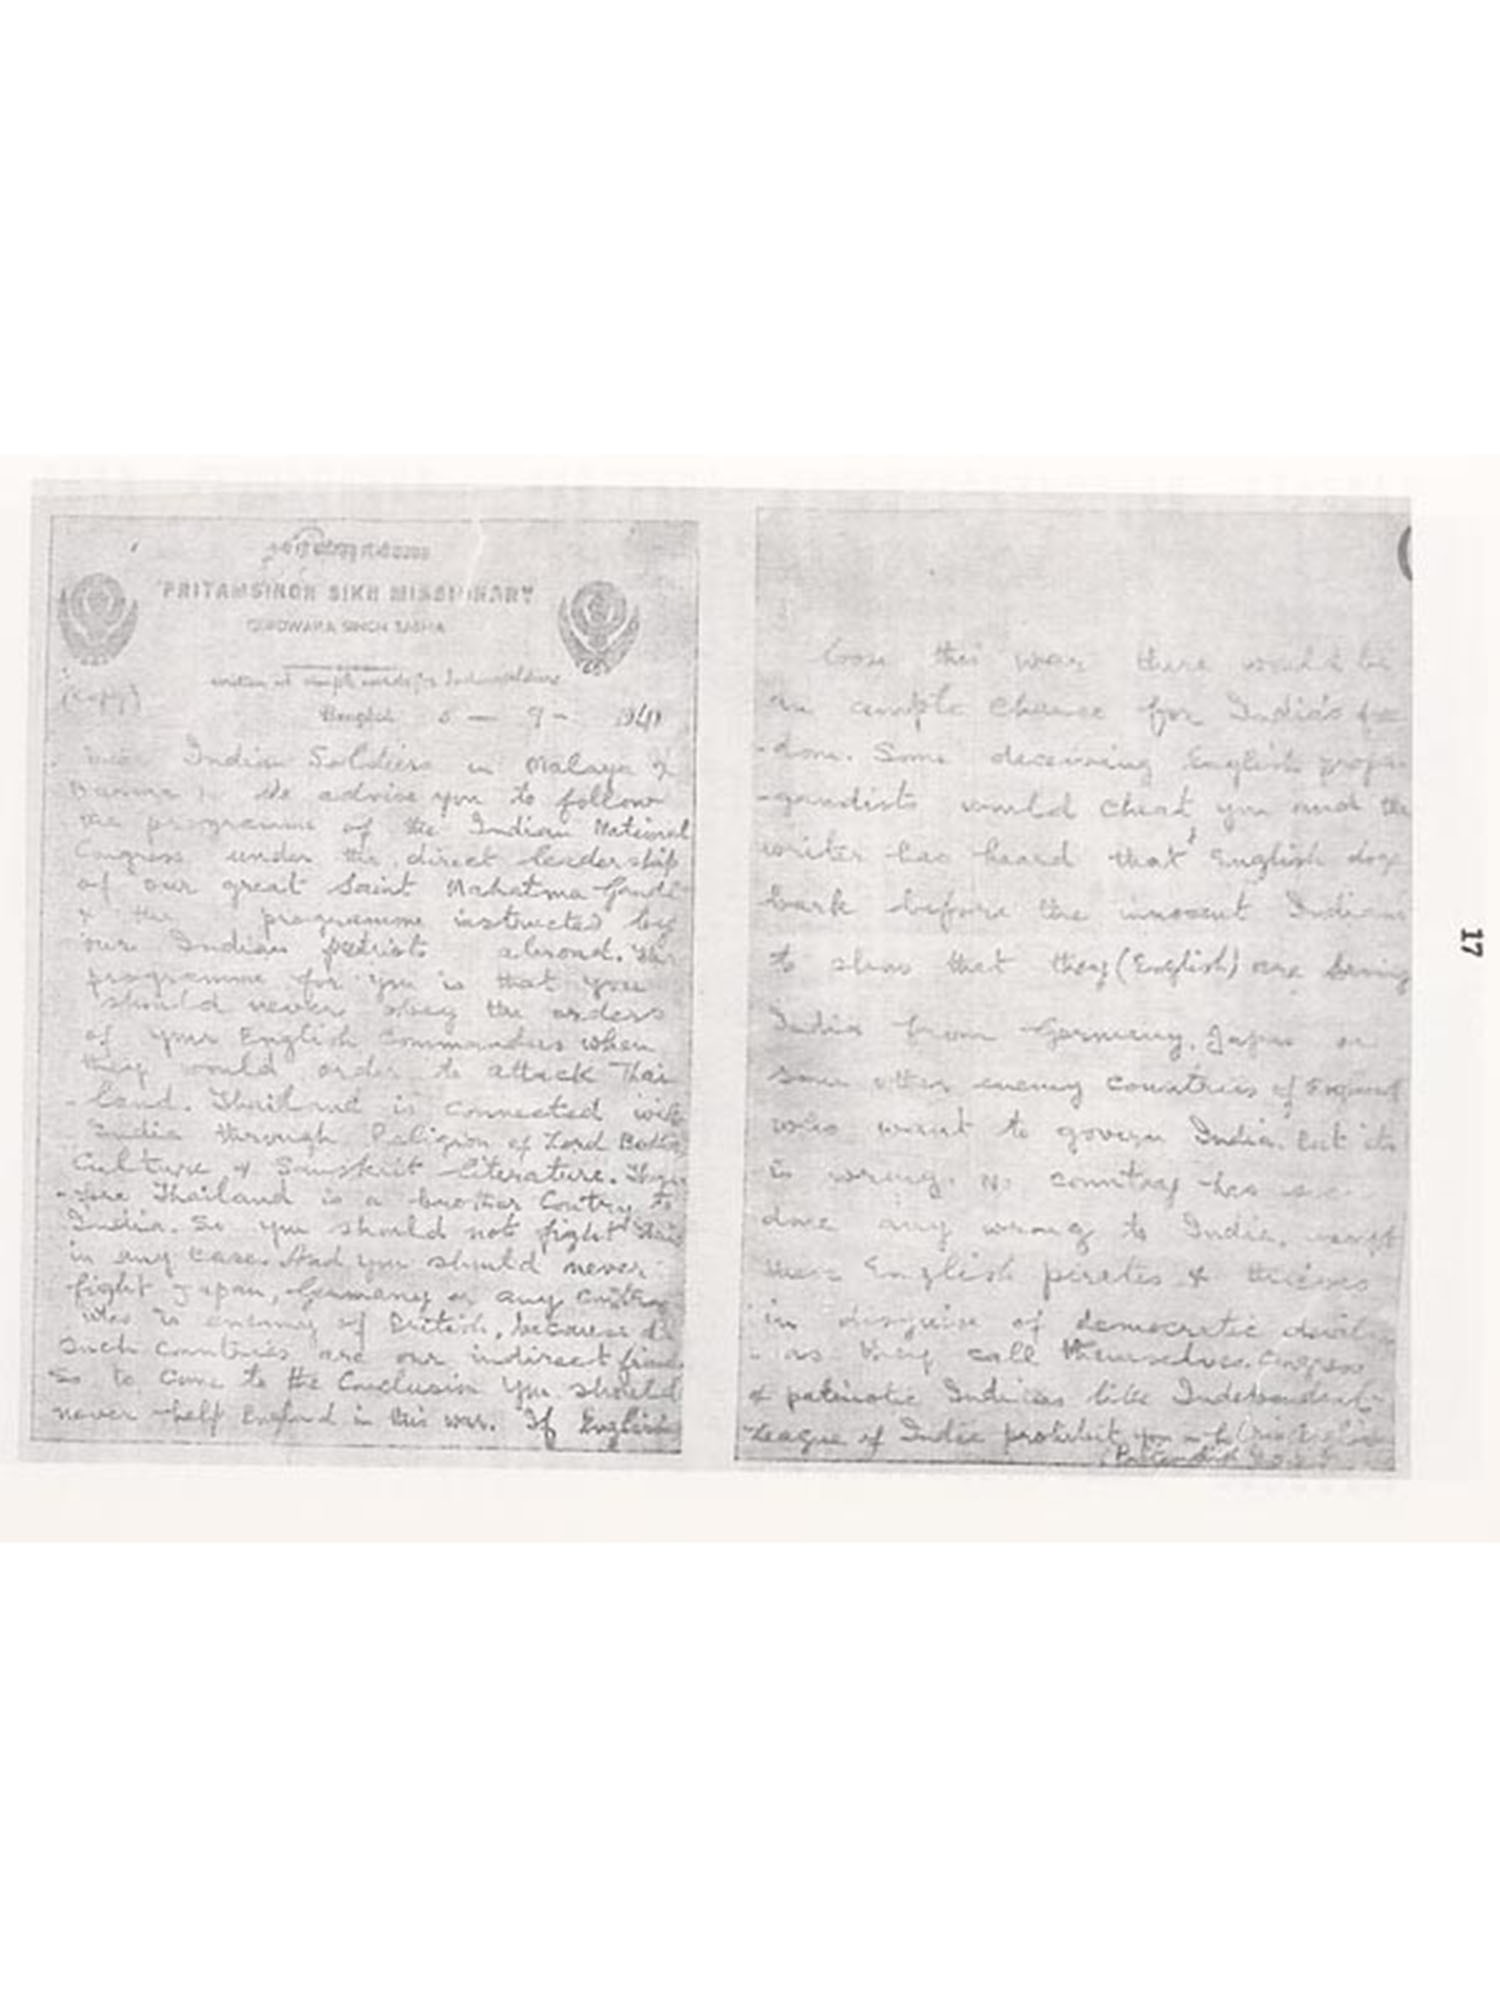 PRITAMSINGH SIKH MISSIONARY
GURDWARA SINGH SABHA
written in simple words for Indian soldiers
(Copy)
Bangkok 5 — 9 - 1941
Indian Soldiers in Malaya &
Burma We advise you to follow
the programme of the Indian National
Congress under the direct leadership
of our great Saint Mahatma Gandi
& the programme instructed by
our Indian patriots abroad. The
programme for you is that you
should never obey the orders
of your English Commanders when
they would order to attack Thai
-land. Thailand is connected with
India through Religion of Lord
Culture & Sanskrit literature. There
-fore Thailand is a brother Contry to
India. So you should not fight Thai
in any case. And you should never
fight Japan, Germany or any
who is enemy of British, because
such countries are our indirect
So to Come to the Conclusion you should
never help England in this war. If English
loose this war there would be
an ample chance for India's free
-dom. Some deceiving English propa
-gandists would cheat you and the
writer has heard that English dogs
bark before the innocent Indians
to show that they (English) are saving
India from Germany, Japan or
some other enemy countries of England
who want to govern India. But its
is wrong. No country has
done any wrong to India, except
these English pirates & thieves
in disguise of democratic devils
as they call themselves. Congress
& patriotic Indians like Independent
League of India prohibit you